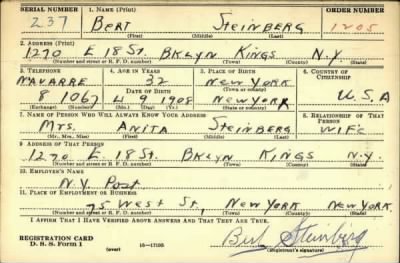 SERIAL NUMBER 1. NAME (Print) ORDER NUMBER
237 BERT STEINBERG 1205
(First) (Middle) (Last)
2. ADDRESS (Print)
1270 E 18 St. BKLYN KINGS N.Y
(Number and street or R. F. D. number) (Town) (County) (State)
3. TELEPHONE 4. AGE IN YEARS 5. PLACE OF BIRTH 6. COUNTRY OF CITIZENSHIP
NAVARRE 32 NEW YORK
DATE OF BIRTH (Town or county)
8 1067 4 9 1908 NEW YORK U.S.A
(Exchange) (Number) (Mo.) (Day) (Yr.) (State or country)
7. NAME OF PERSON WHO WILL ALWAYS KNOW YOUR ADDRESS 8. RELATIONSHIP OF THAT PERSON
MRS. ANITA STEINBERG WIFE
(Mr., Mrs., Miss) (First) (Middle) (Last)
9. ADDRESS OF THAT PERSON
1270 E. 18 St. BKLYN KINGS N.Y.
(Number and street or R. F. D. number) (Town) (County) (State)
10. EMPLOYER'S NAME
N.Y. Post
11. PLACE OF EMPLOYMENT OR BUSINESS
75 WEST St, NEW YORK NEW YORK
(Number and street or R. F. D. number) (Town) (County) (State)
I AFFIRM THAT I HAVE VERIFIED ABOVE ANSWERS AND THAT THEY ARE TRUE.
REGISTRATION CARD
D. S. S. Form 1 (over) 16-17105 Bert Steinberg
(Registrant's signature)